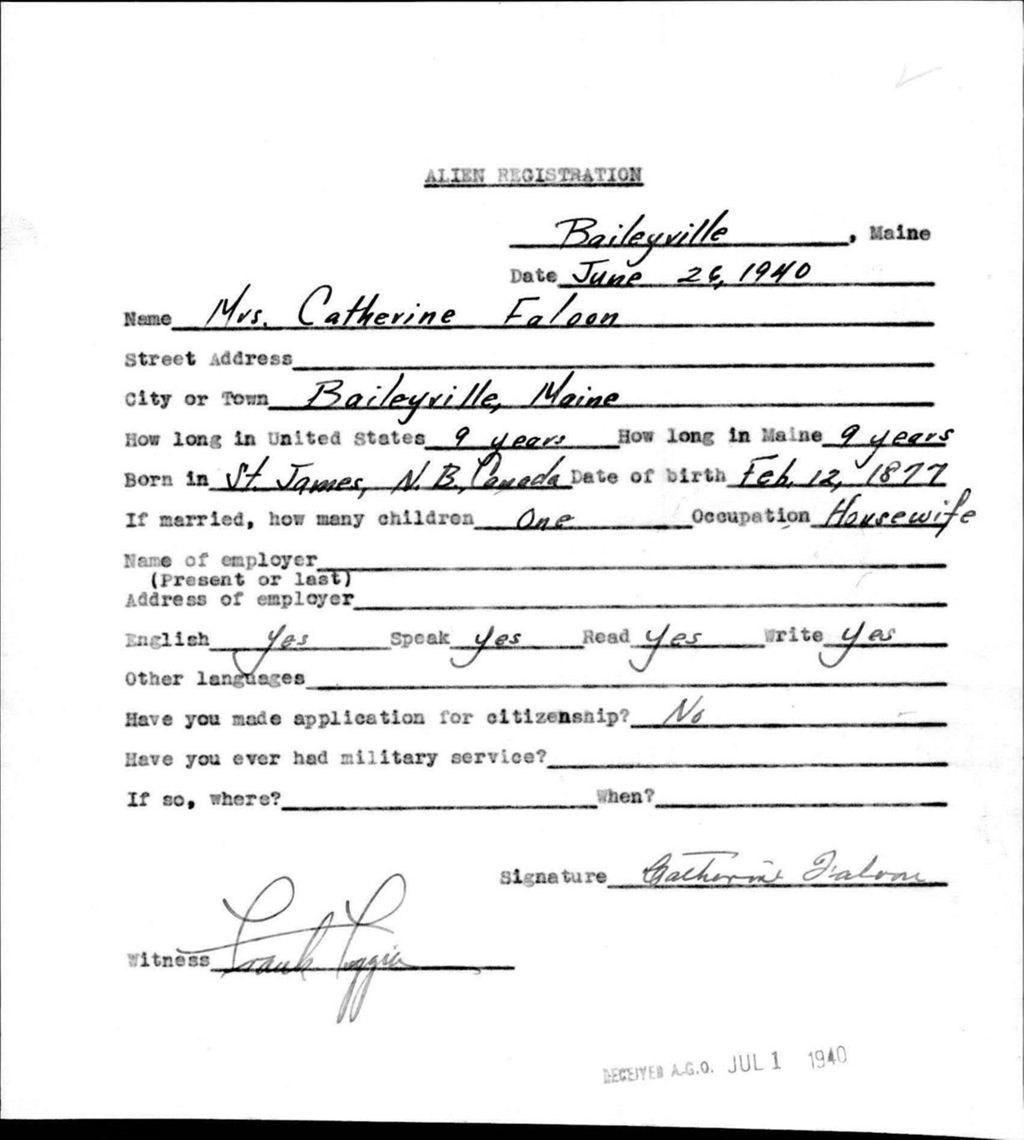 ALIEN REGISTRATION
Baileyville, Maine
Date June 26, 1940
Name Mrs. Catherine Faloon
Street Address
City or Town Baileyville, Maine
How long in United States 9 years How long in Maine 9 years
Born in St. James, N. B., Canada Date of birth Feb. 12, 1877
If married, how many children One Occupation Housewife
Name of employer
(Present or last)
Address of employer
English Yes Speak Yes Read Yes Write Yes
Other languages
Have you made application for citizenship? No
Have you ever had military service?
If so, where? When?
Signature Catherine Faloon
Witness Frank
RECEIVED A.G.O. JUL 1 1940